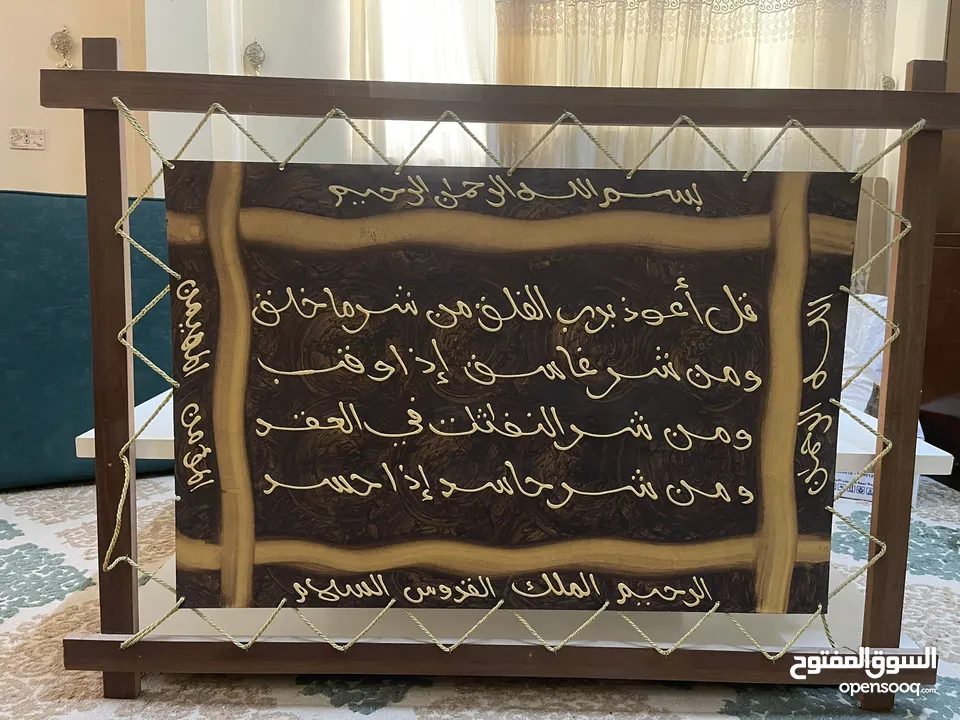 بسم الله الرحمن الرحيم
قل أعوذ برب الفلق من شر ما خلق
ومن شر غاسق إذا وقب
ومن شر النفاثات في العقد
ومن شر حاسد إذا حسد
الرحيم الملك القدوس السلام
المؤمن المهيمن
السوق المفتوح
opensooq.com